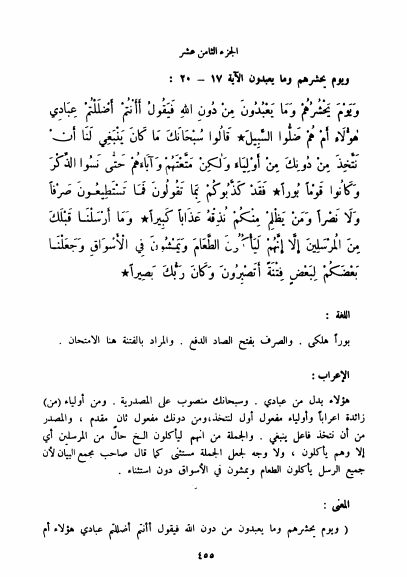 الجزء الثامن عشر
ويوم يحشرهم وما يعبدون الآية ١٧ – ٢٠ :
وَيَوْمَ يَحْشُرُهُمْ وَمَا يَعْبُدُونَ مِنْ دُونِ اللهِ فَيَقُولُ أَأَنْتُمْ أَضْلَلْتُمْ عِبَادِي
هٰؤُلَاءِ أَمْ هُمْ ضَلُّوا السَّبِيلَ★ قَالُوا سُبْحَانَكَ مَا كَانَ يَنْبَغِي لَنَا أَنْ
نَتَّخِذَ مِنْ دُونِكَ مِنْ أَوْلِيَاءَ وَلٰكِنْ مَتَّعْتَهُمْ وَآبَاءَهُمْ حَتَّى نَسُوا الذِّكْرَ
وَكَانُوا قَوْماً بُوراً★ فَقَدْ كَذَّبُوكُمْ بِمَا تَقُولُونَ فَمَا تَسْتَطِيعُونَ صَرْفاً
وَلَا نَصْراً وَمَنْ يَظْلِمْ مِنْكُمْ نُذِقْهُ عَذَاباً كَبِيراً★ وَمَا أَرْسَلْنَا قَبْلَكَ
مِنَ الْمُرْسَلِينَ إِلَّا إِنَّهُمْ لَيَأْكُلُونَ الطَّعَامَ وَيَمْشُونَ فِي الْأَسْوَاقِ وَجَعَلْنَا
بَعْضَكُمْ لِبَعْضٍ فِتْنَةً أَتَصْبِرُونَ وَكَانَ رَبُّكَ بَصِيراً★
اللغة :
بوراً هلكى . والصرف بفتح الصاد الدفع . والمراد بالفتنة هنا الامتحان .
الإعراب :
هؤلاء بدل من عبادي . وسبحانك منصوب على المصدرية . ومن أولياء (من)
زائدة اعراباً وأولياء مفعول أول لنتخذ،ومن دونك مفعول ثان مقدم ، والمصدر
من أن نتخذ فاعل ينبغي . والجملة من انهم ليأكلون الخ حال من المرسلين أي
إلا وهم يأكلون ، ولا وجه لجعل الجملة مستثنى كما قال صاحب مجمع البيان لأن
جميع الرسل يأكلون الطعام ويمشون في الأسواق دون استثناء .
المعنى :
( ويوم يحشرهم وما يعبدون من دون الله فيقول أأنتم أضللتم عبادي هؤلاء أم
٤٥٥